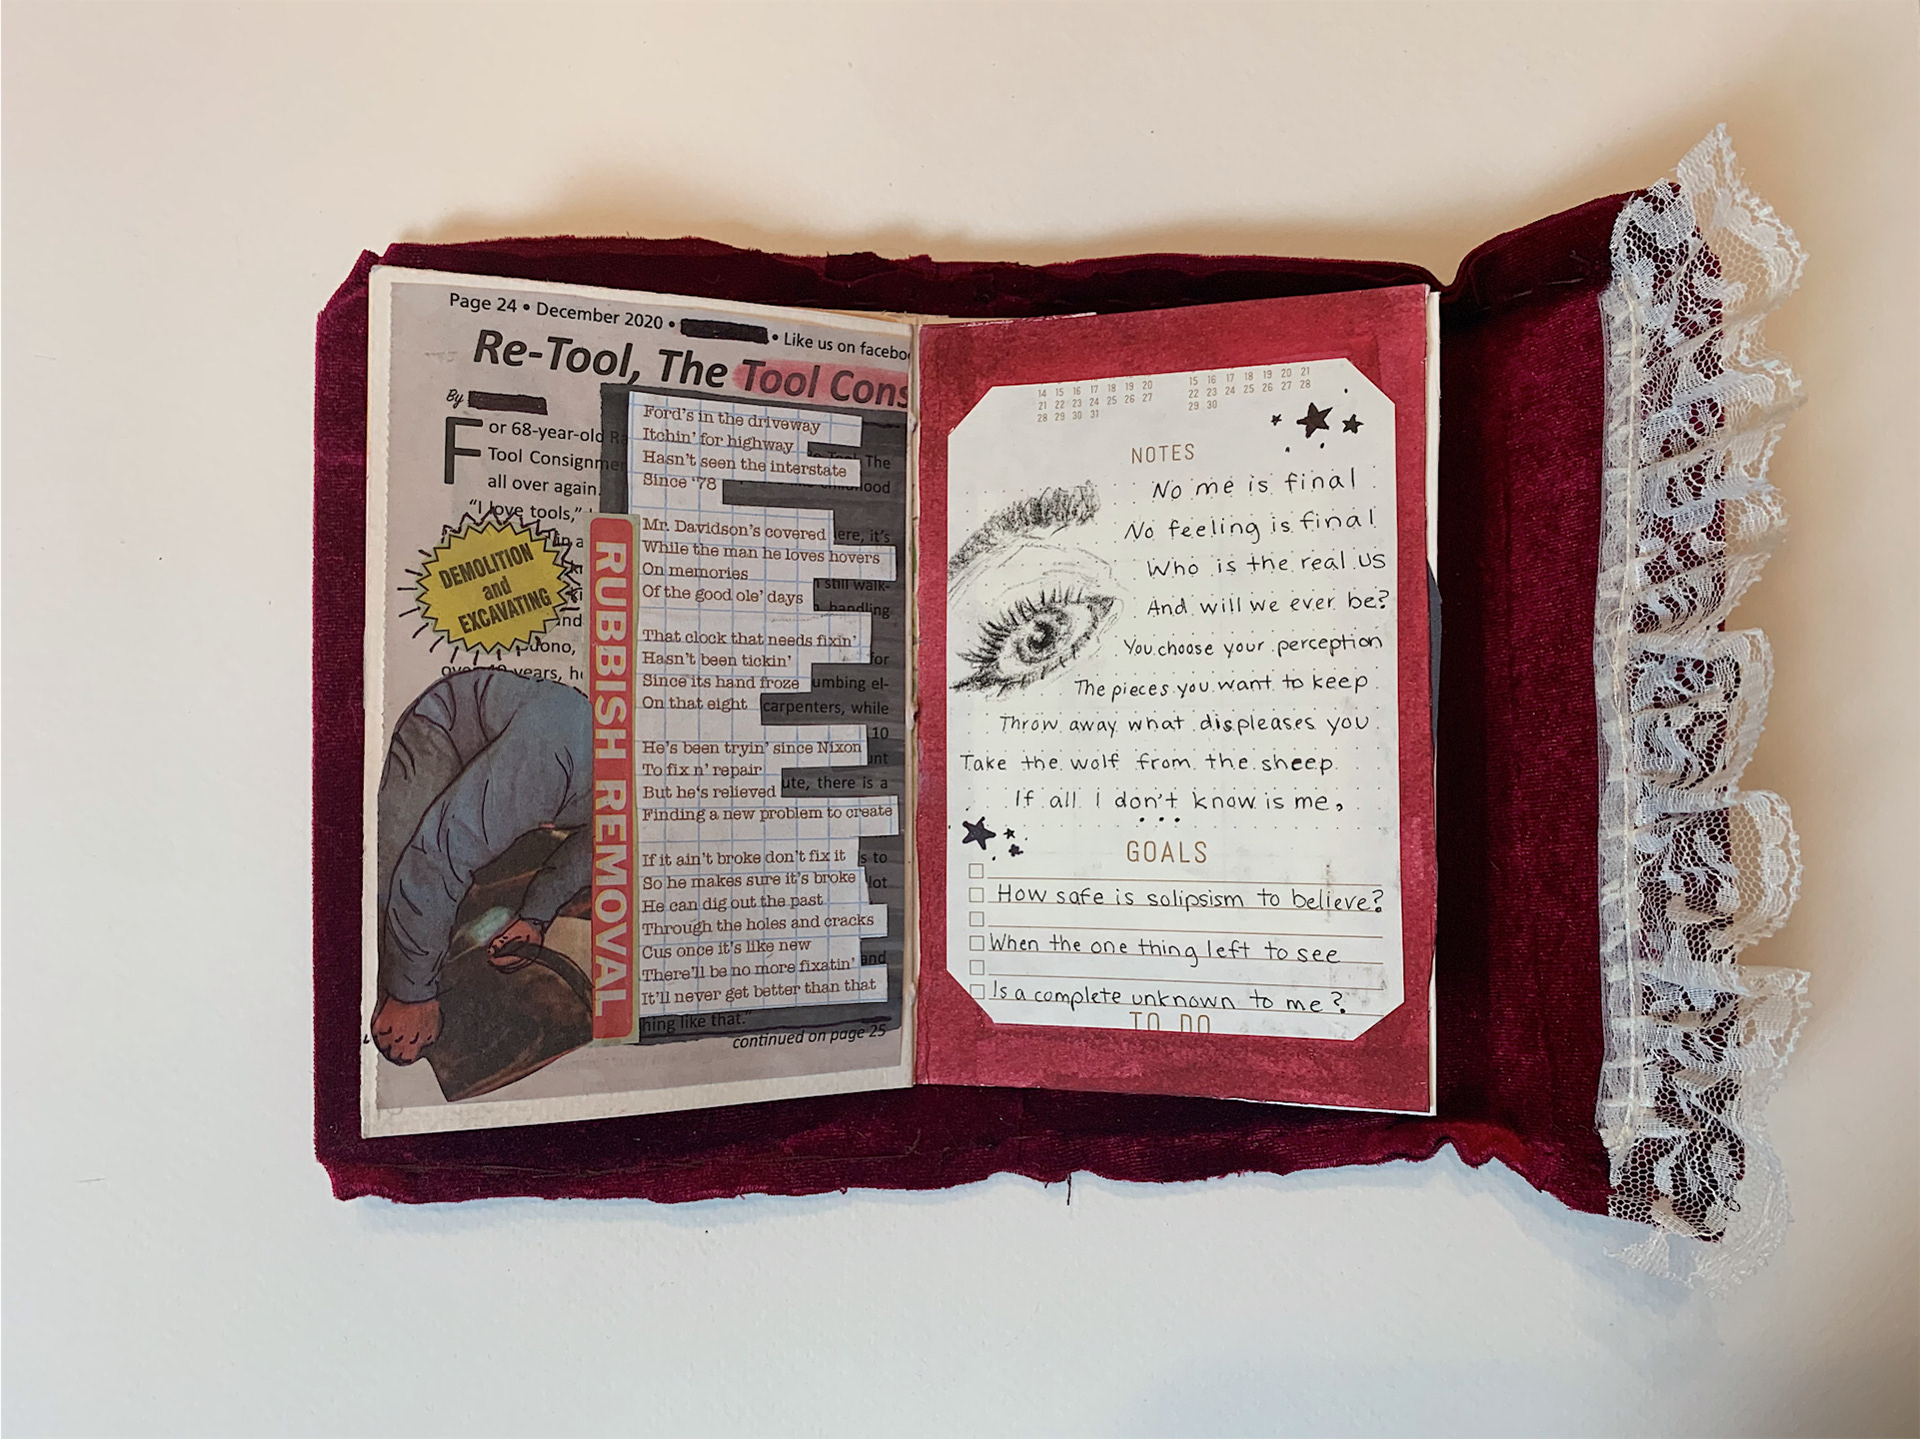 Page 24 • December 2020 • • Like us on
Re-Tool, The Tool
By
For 68-year-old
Tool
all over again.
"I love tools,"
years,
DEMOLITION
and
EXCAVATING
RUBBISH REMOVAL
Ford's in the driveway
Itchin' for highway
The
Hasn't seen the interstate
Since '78
Mr. Davidson's covered
it's
While the man he loves hovers
On memories
still walk-
Of the good ole' days
handling
That clock that needs fixin'
Hasn't been tickin'
for
Since its hand froze
On that eight
carpenters, while
10
He's been tryin' since Nixon
To fix n' repair
But he's relieved
there is a
Finding a new problem to create
If it ain't broke don't fix it
to
So he makes sure it's broke
lot
He can dig out the past
Through the holes and cracks
Cus once it's like new
There'll be no more fixatin'
and
It'll never get better than that
like that."
continued on page 25
14 15 16 17 18 19 20
21 22 23 24 25 26 27
28 29 30 31
15 16 17 18 19 20 21
22 23 24 25 26 27 28
29 30
NOTES
No me is final
No feeling is final
Who is the real us
And will we ever be?
You choose your perception
The pieces you want to keep
Throw away what displeases you
Take the wolf from the sheep
If all I don't know is me,
...
GOALS
How safe is solipsism to believe?
When the one thing left to see
Is a complete unknown to me?
TO DO